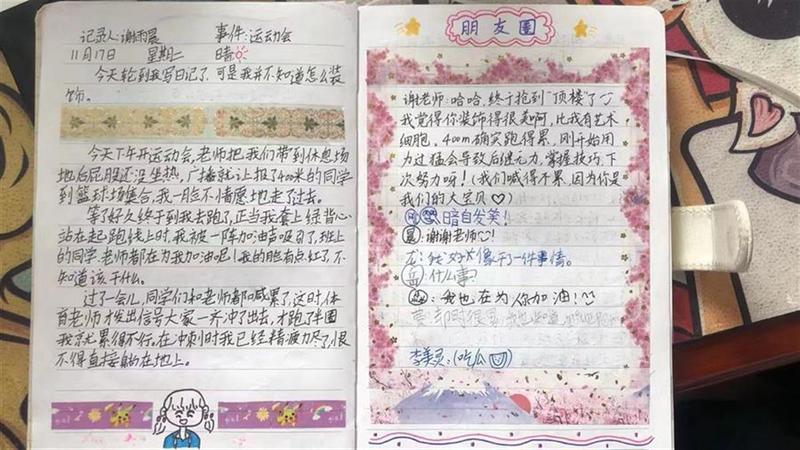 记录人:谢雨晨 事件:运动会
11月17日 星期二 晴
今天轮到我写日记了,可是我并不知道怎么装
饰。
今天下午开运动会,老师把我们带到休息场
地后屁股还没坐热,广播就让报了400米的同学
到篮球场集合,我一脸不情愿地走了过去。
等了好久终于到我去跑了,正当我套上绿背心
站在起跑线上时,我被一阵加油声吸引了,班上
的同学、老师都在为我加油呢!我的脸有点红了,不
知道该干什么。
过了一会儿,同学们和老师都喊累了,这时,体
育老师才发出信号大家一齐冲了出去,才跑了半圈
我就累得不行,在冲刺时我已经精疲力尽了,恨
不得直接躺在地上。
朋友圈
谢老师:哈哈,终于抢到“顶楼”了
我觉得你装饰得很美啊,比我有艺术
细胞,400m确实跑得累,刚开始用
力过猛会导致后继无力,掌握技巧,下
次努力呀!(我们喊得不累,因为你是
我们的大宝贝♡)
暗自发笑!
谢谢老师!
龙:我好像干了一件事情。
什么事?
:我也在为你加油!
李美灵:(吃瓜)